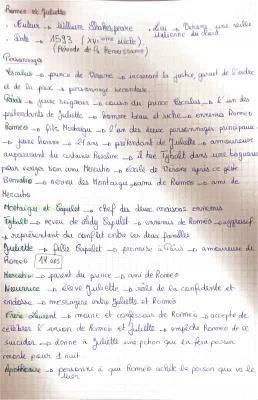 Romeo et Juliette
• Auteur → William Shakespeare • Lieu → Verone, une ville
• Date → 1593 (XVI ième siècle) italienne du nord
(Période de la Renaissance)
Personnages
Escalus → prince de Verone → incarnant la justice, garant de l'ordre
et de la paix → personnage secondaire
Pâris → jeune seigneur → cousin du prince Escalus → l'un des
prétendants de Juliette → homme beau et riche → ennemis Romeo
Romeo → fils Montaigu → l'un des deux personnages principaux
→ jeune homme → 21 ans → prétendant de Juliette → amoureux
auparavant du certaine Rosaline → il tue Tybalt dans une bagarre
pour venger son ami Mercutio → exilé de Vérone après ce geste
Benvolio → neveu des Montaigu → ami de Romeo → ami de
Mercutio
Montaigu et Capulet → chef des deux maisons ennemis
Tybalt → neveu de Lady Capulet → ennemis de Roméo → aggressif
→ représentant du conflit entre les deux familles
Juliette → fille Capulet → promise à Pâris → amoureuse de
Roméo 14 ans
Mercutio → parent du prince → ami de Romeo
Nourrice → élève Juliette → rôle de la confidente et
endosse → messagère entre Juliette et Roméo
Frère Laurent → moine et confesseur de Roméo → accepte de
célébrer l'union de Roméo et Juliette → empêche Roméo de se
suicider → donne à Juliette une potion qui la fera passer
morte pour 1 nuit
Apothicaire → personne à qui Romeo achète le poison qui va le
tuer